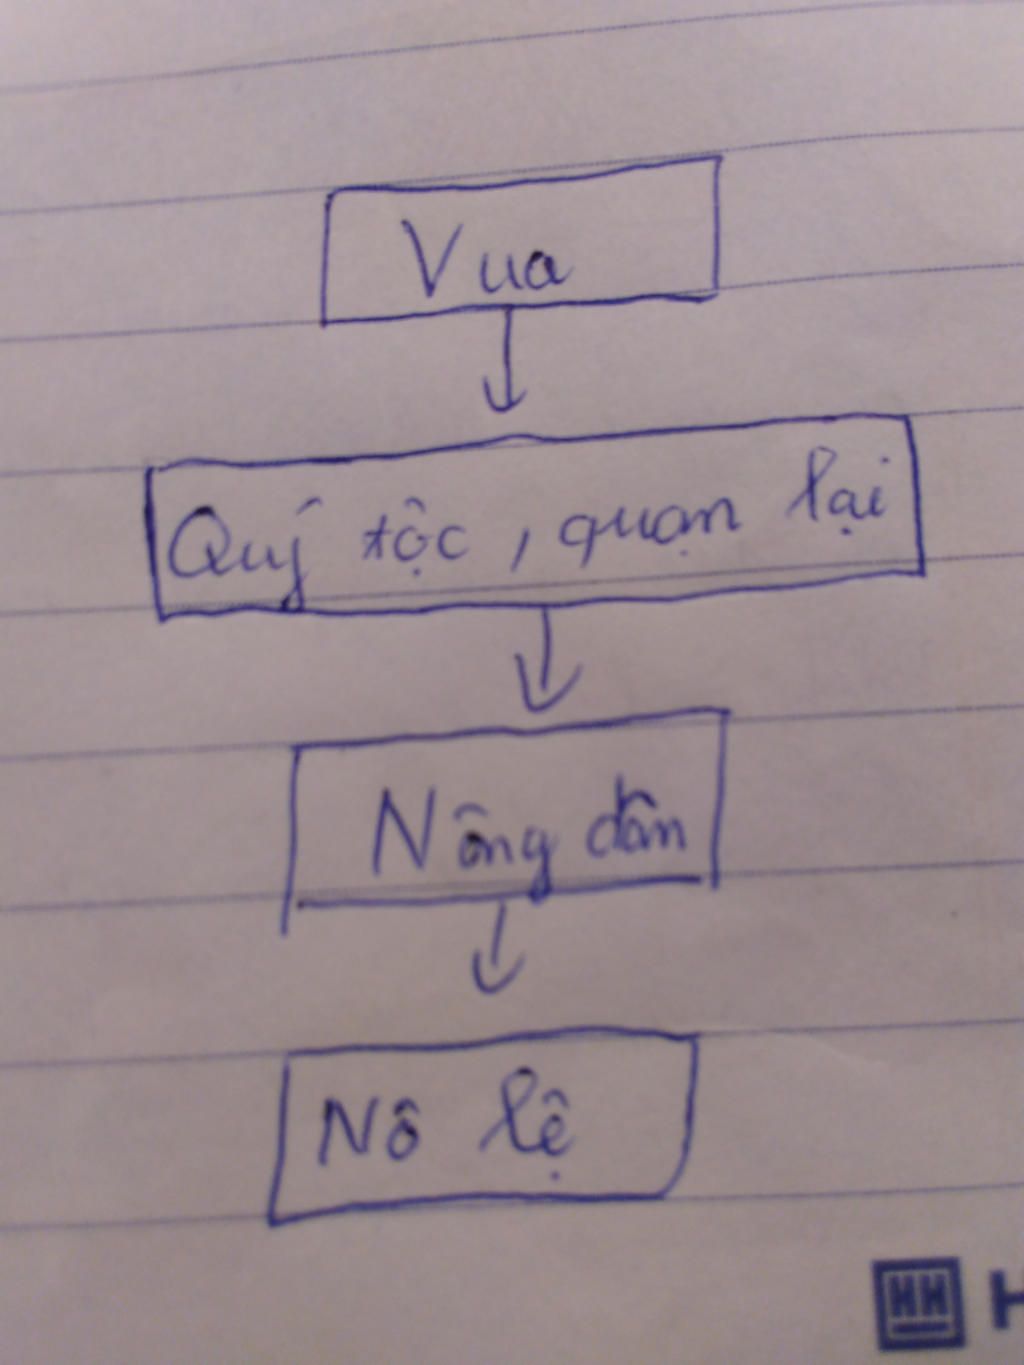 Vua
Quý tộc, quan lại
Nông dân
Nô lệ
HH H